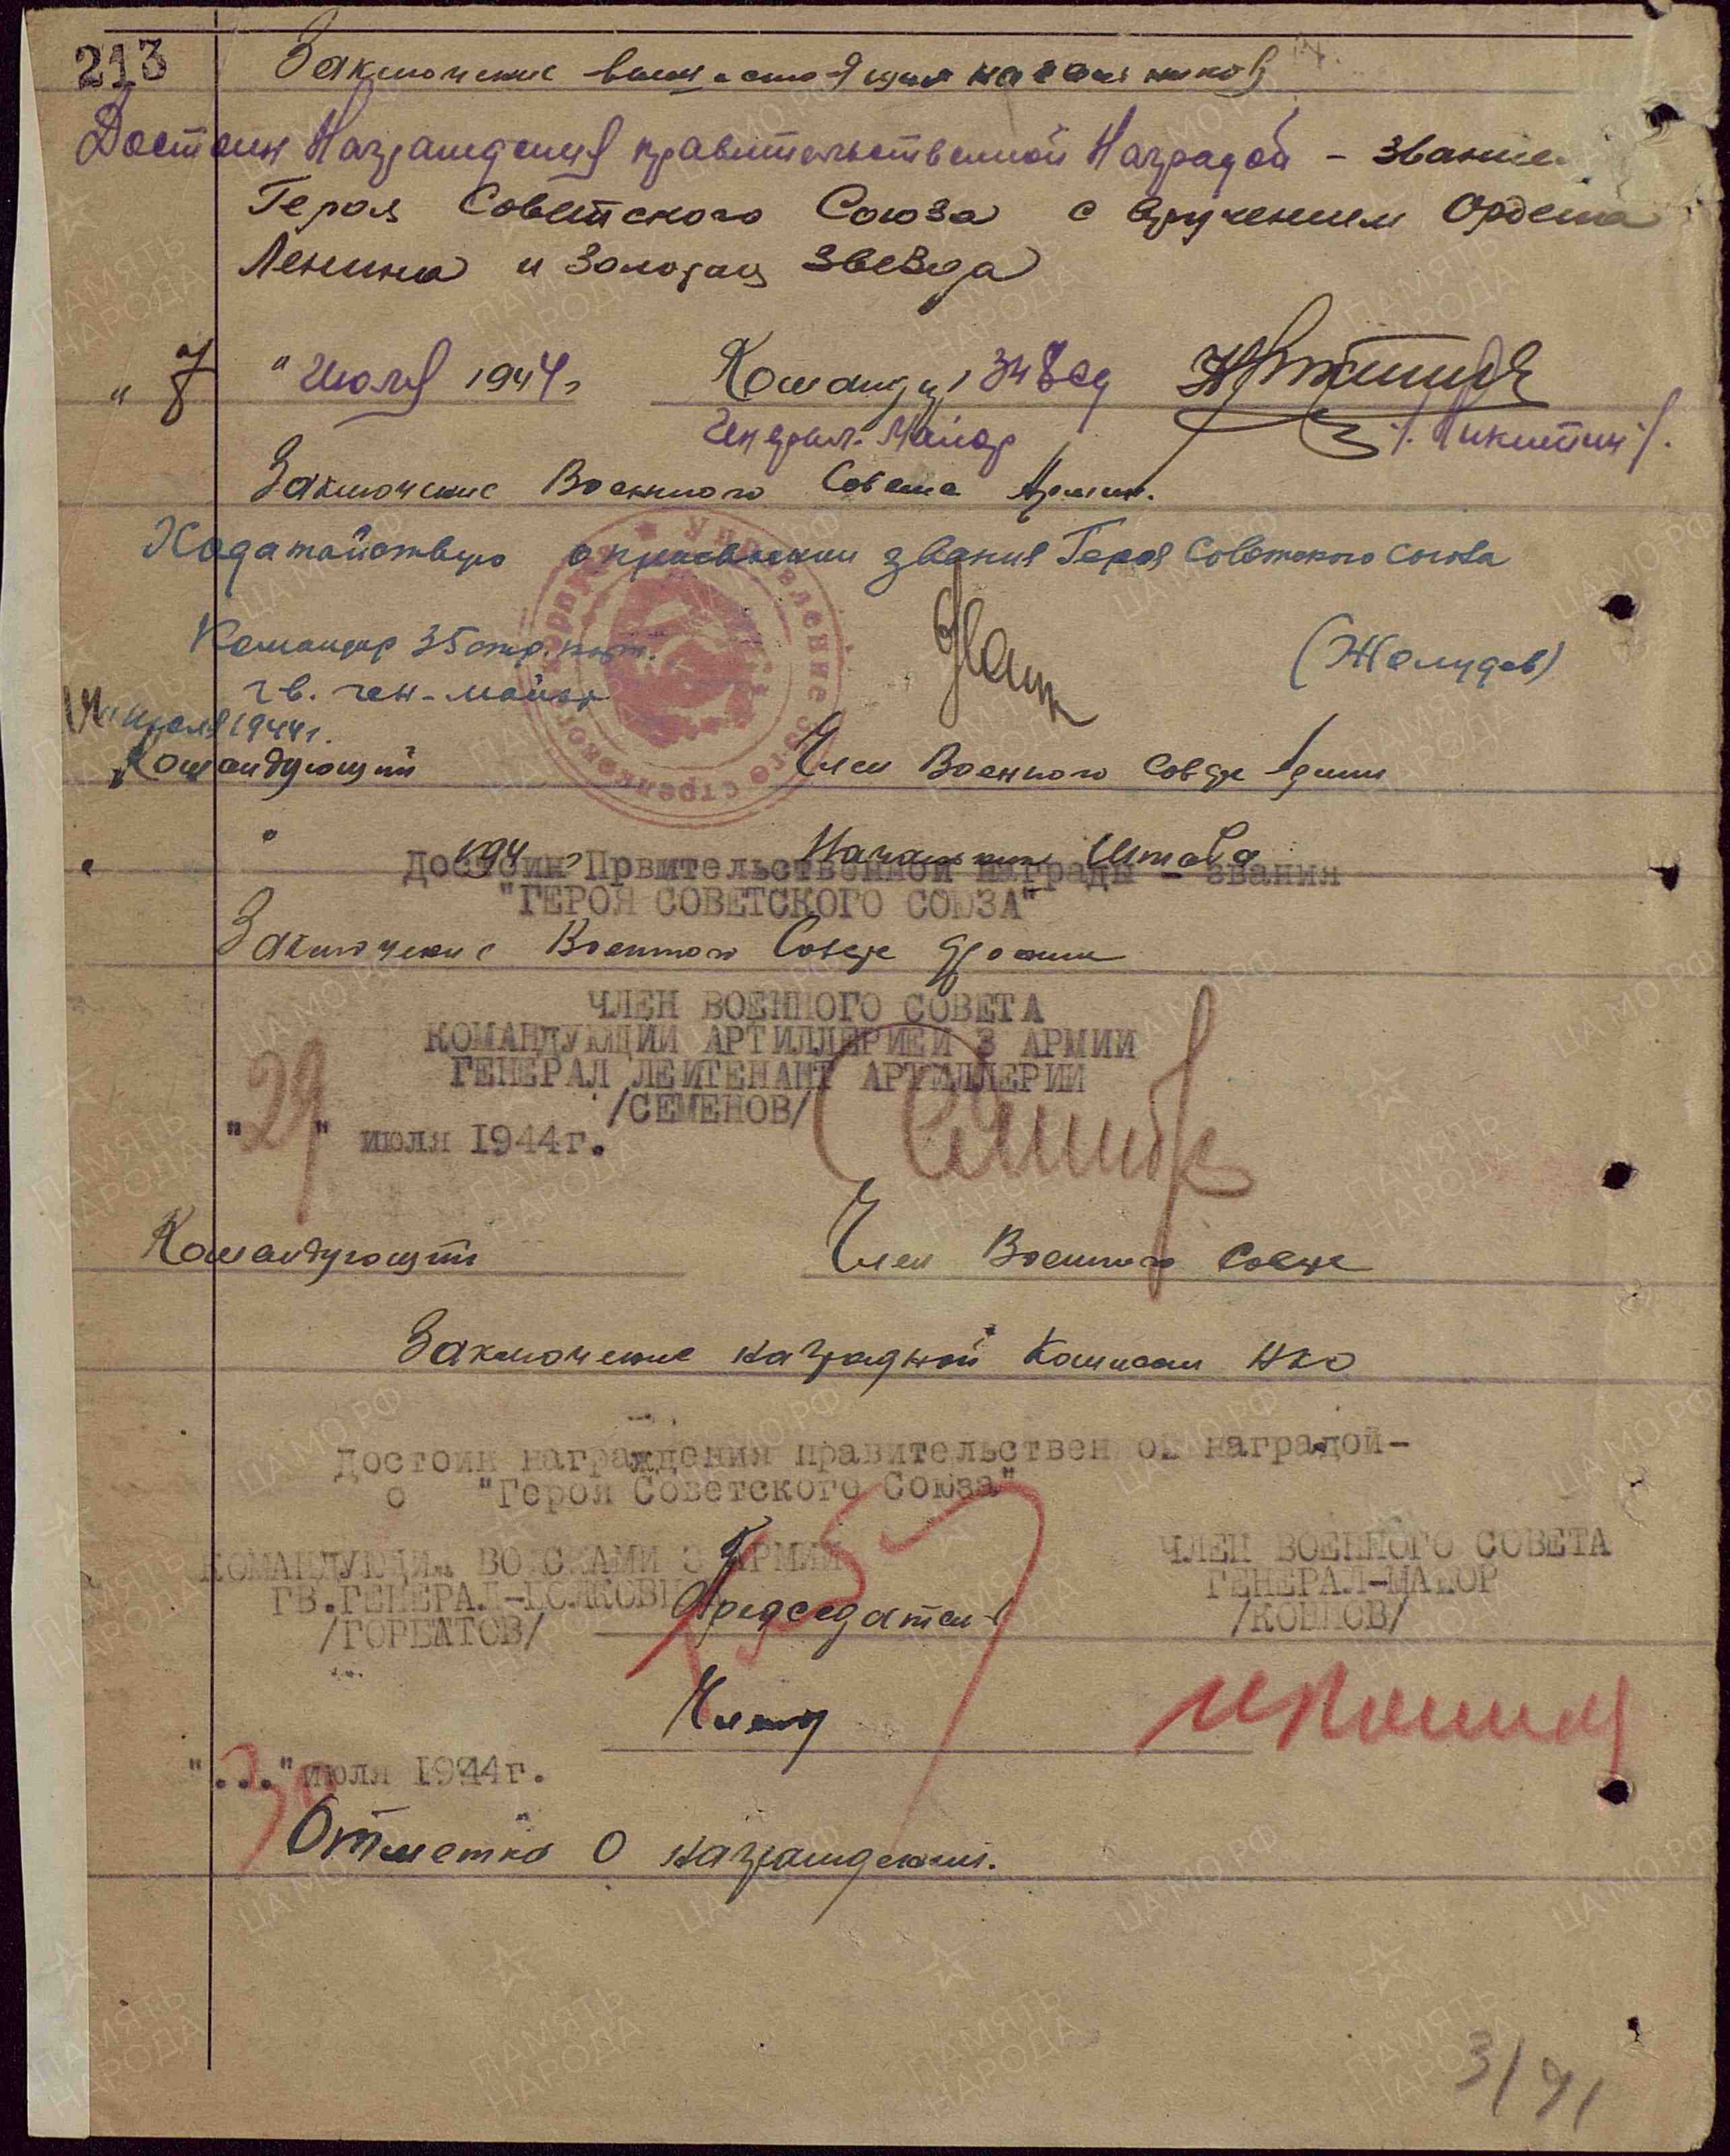 213
Заключение вышестоящих начальников
Достоин Награждения правительственной Наградой - звание
Героя Советского Союза с вручением Ордена
Ленина и Золотая звезда
"7" Июля 1944г Командир 348 сд
Генерал-Майор /Никитин/.
Заключение Военного Совета Армии.
Ходатайствую о присвоении звания Героя Советского Союза
Командир 35 стр. корп.
гв. ген-майор (Жолудев)
июля 1944г.
Командующий Член Военного Совета Армии
" " 194 г Начальник Штаба
Достоин Првительственной награды - звания
"ГЕРОЯ СОВЕТСКОГО СОЮЗА"
Заключение Военного Совета фронта
ЧЛЕН ВОЕННОГО СОВЕТА
КОМАНДУЮЩИЙ АРТИЛЛЕРИЕЙ 3 АРМИИ
ГЕНЕРАЛ ЛЕЙТЕНАНТ АРТИЛЛЕРИИ
/СЕМЕНОВ/
"29" июля 1944г.
Командующий Член Военного Совета
Заключение наградной Комиссии НКО
Достоин награждения правительствен ой наградой-
"Героя Советского Союза"
КОМАНДУЮЩИЙ ВОЙСКАМИ 3 АРМИИ ЧЛЕН ВОЕННОГО СОВЕТА
ГВ.ГЕНЕРАЛ-ПОЛКОВНИК ГЕНЕРАЛ-МАЙОР
Председатель
/ГОРБАТОВ/ /КОННОВ/
Члены
"30" июля 1944г.
Отметка о награждении.
Управление 35го стрелкового корпуса
ПАМЯТЬ НАРОДА
ЦАМО.РФ